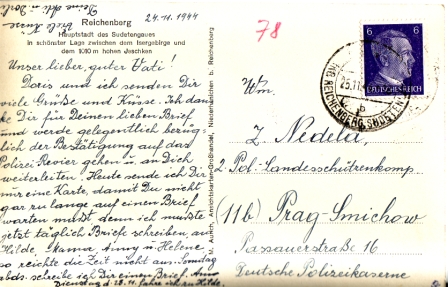 Reichenberg
Hauptstadt des Sudetengaues
in schönster Lage zwischen dem Isergebirge und
dem 1010 m hohen Jeschken
24.11.1944
78
Unser lieber, guter Vati!
Doris und ich senden Dir
viele Grüße und Küsse. Ich dan-
ke Dir für Deinen lieben Brief
und werde gelegentlich bezüg-
lich der Bestätigung auf das
Polizei Revier gehen u. an Dich
weiterleiten. Heute sende ich Dir
nur eine Karte, damit Du nicht
gar zu lange auf einen Brief
warten mußt denn ich müßte
jetzt täglich Briefe schreiben, an
Hilde, Mama Anny u Helene
so reichte die Zeit nicht aus. Sonntag
abds. schreibe ich Dir einen Brief.
Dienstag d. 28.11. fahre ich zu Hilde.
Viele Küsse
Deine
6 6
DEUTSCHES REICH
REICHENBERG
25.11.
b
Wm.
Z. Nedela,
2. Pol.-Landesschützenkomp.
(11b) Prag-Smichow
Passauerstraße 16
Deutsche Polizeikaserne